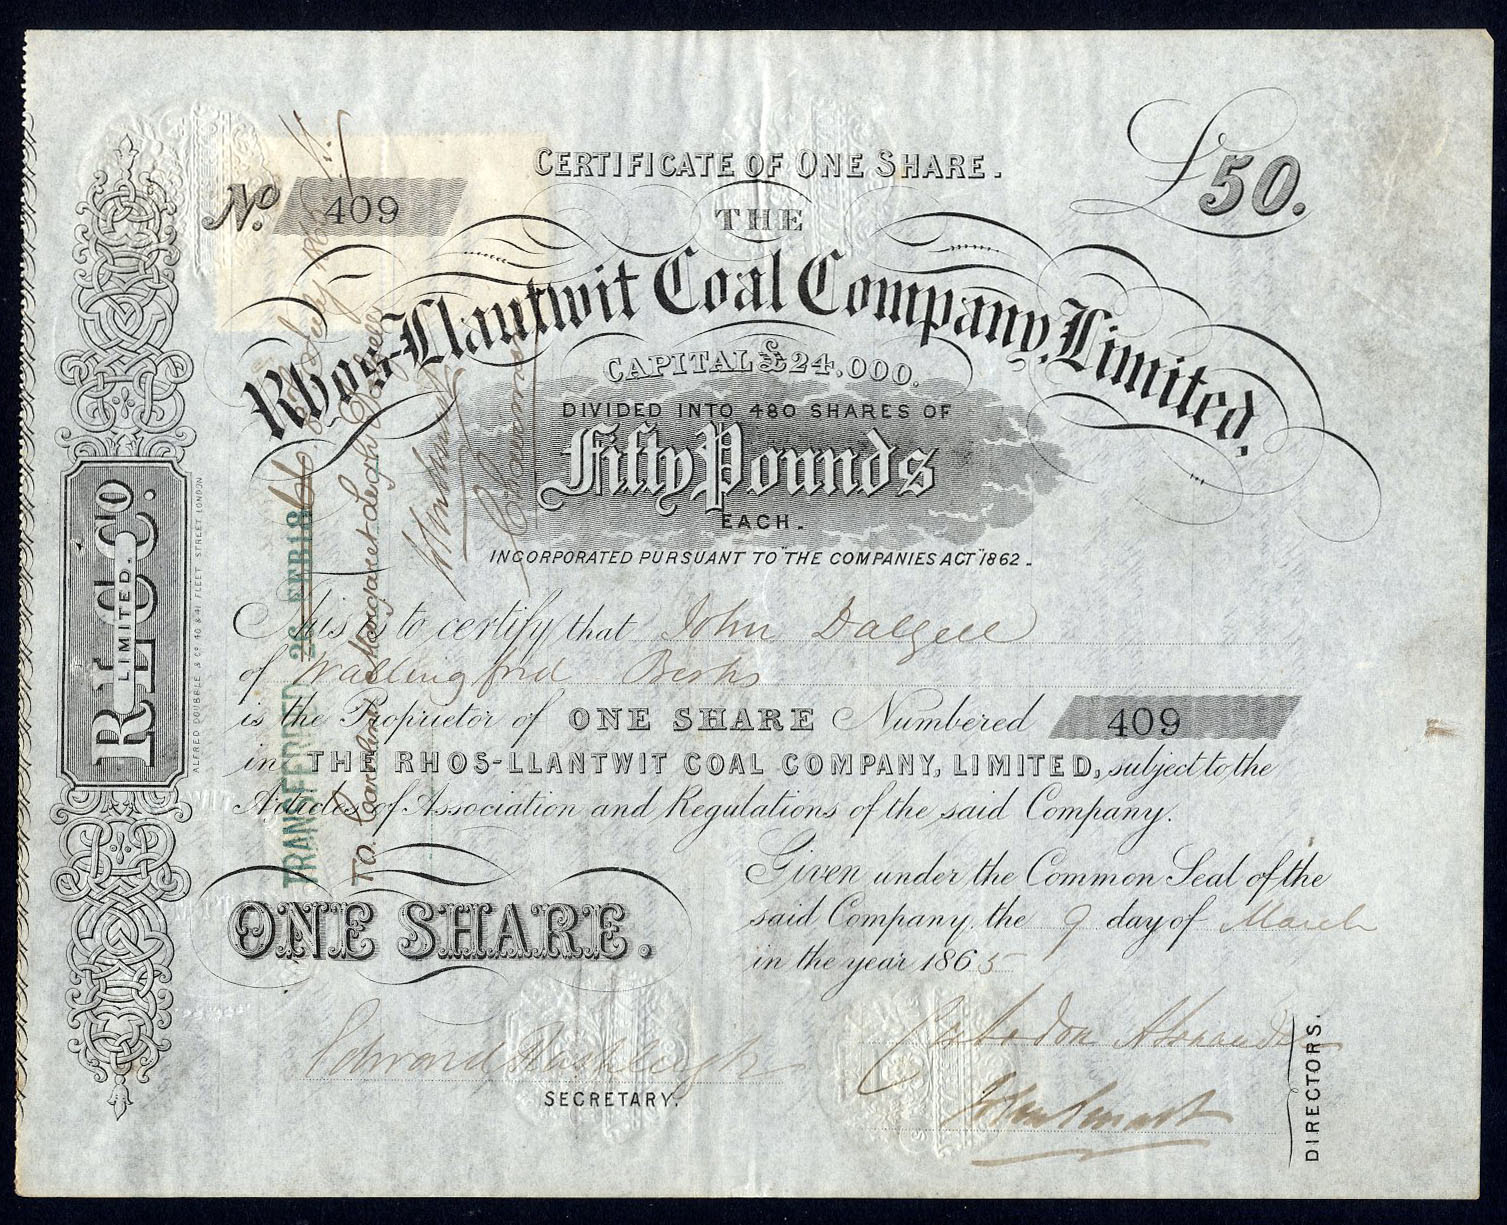 CERTIFICATE OF ONE SHARE.
£50.
No. 409
THE
Rhos-Llantwit Coal Company, Limited.
CAPITAL £24,000.
DIVIDED INTO 480 SHARES OF
Fifty Pounds
EACH.
INCORPORATED PURSUANT TO "THE COMPANIES ACT" 1862.
This is to certify that John Dalzell
of Wallingford Berks
is the Proprietor of ONE SHARE Numbered 409
in THE RHOS-LLANTWIT COAL COMPANY, LIMITED, subject to the
Articles of Association and Regulations of the said Company.
Given under the Common Seal of the
said Company, the 9 day of March
in the year 1865
ONE SHARE.
Edward Rashleigh
SECRETARY.
John Smart
DIRECTORS.
RLCCo.
LIMITED.
ALFRED BOUBBLE & Co. 40 & 41 FLEET STREET LONDON
TRANSFERRED 26 FEB 186
To Caroline Margaret Leigh Dalzell
Chairman